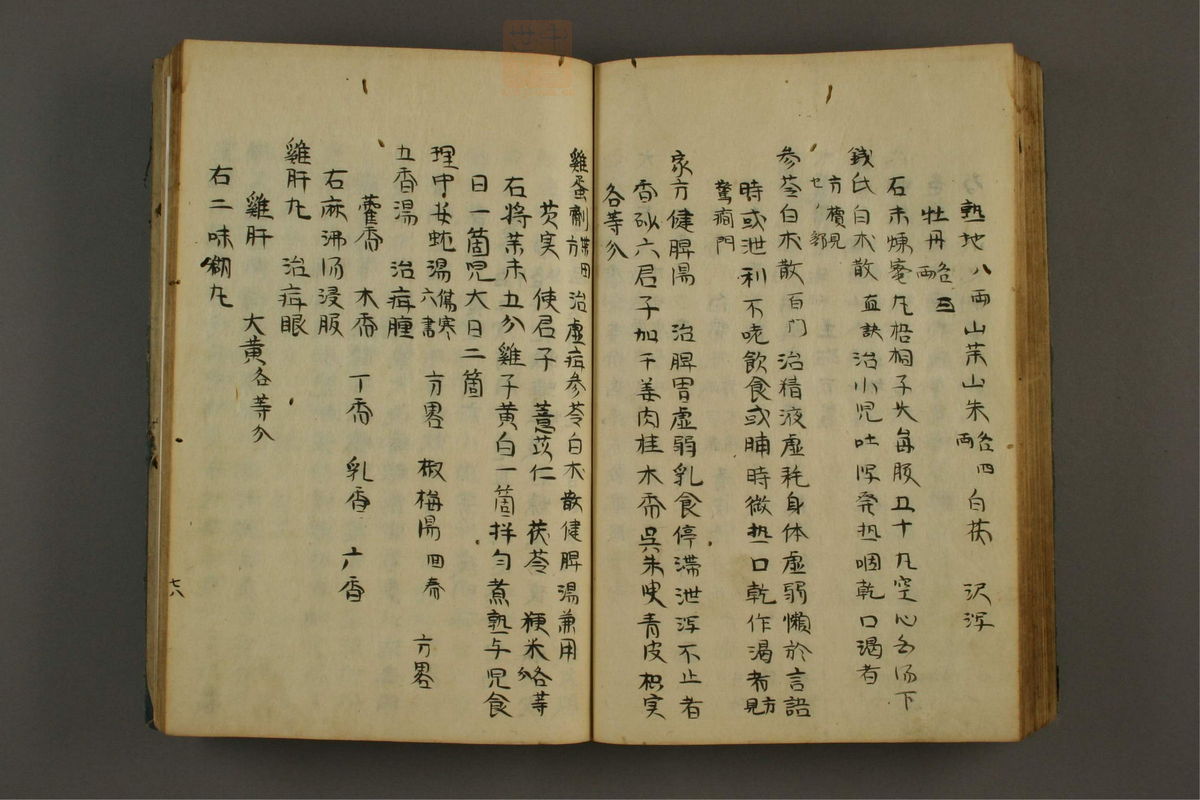 熟地八両 山茱 山朱各四両 白茯 沢浮
牡丹各三両
右末煉蜜丸梧桐子大毎服五十丸空心白汤下
銭氏白朮散 直訣 治小児吐浮発热咽乾口渇者
方積見
七ノ部
参苓白朮散 百门 治精液虚耗身体虚弱懶於言語
時或泄利不吃飲食或晡時微热口乾作渇者方見
驚癇門
家方健脾陽 治脾胃虚弱乳食停滞泄浮不止者
香砂六君子加干姜肉桂木香呉朱萸青皮枳実
各等分
雞蛋劑方 治虚疳参苓白朮散健脾湯兼用
芡実 使君子 薏苡仁 茯苓 粳米各等分
右将茱末五分雞子黄白一箇拌匀煮熟与児食
日一箇児大日二箇
理中安蛇湯 傷寒六書 方畧 椒梅湯 回春 方畧
五香湯 治疳腫
藿香 木香 丁香 乳香 香
右麻沸汤浸服
雞肝丸 治疳眼
雞肝 大黄各等分
右二味糊丸
六八